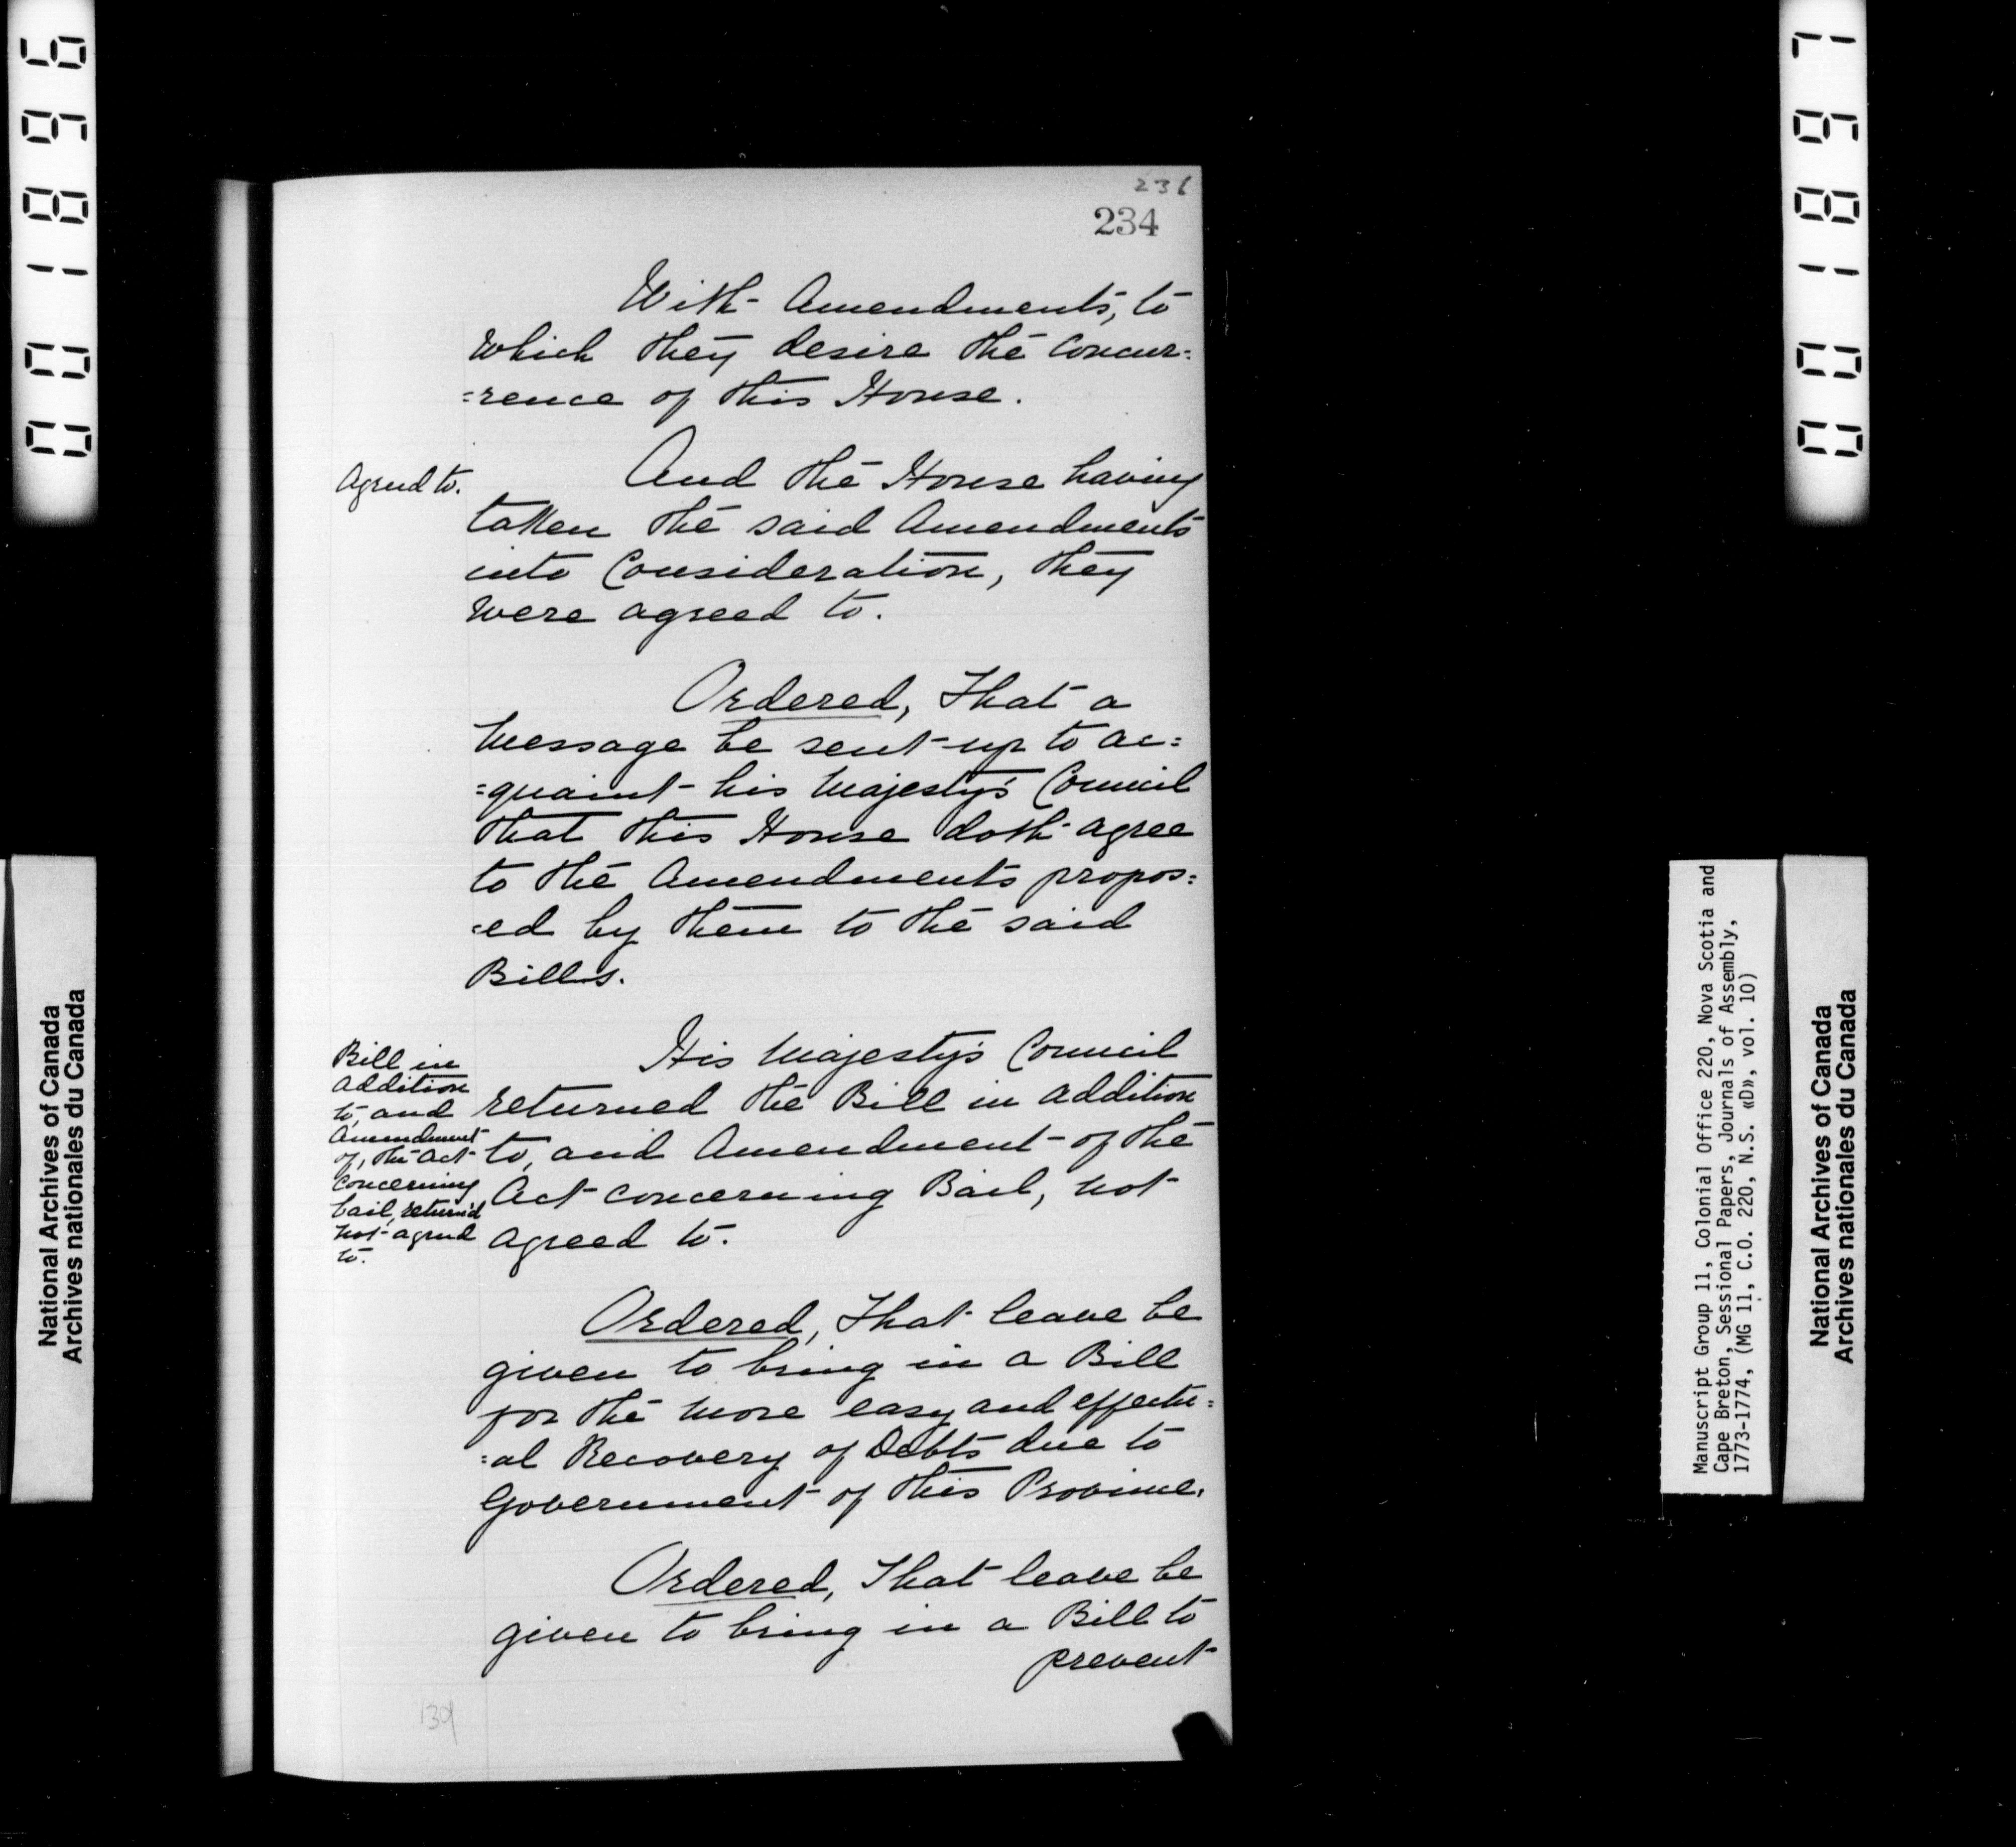 001896
National Archives of Canada
Archives nationales du Canada
236
234
With Amendments, to
which they desire the concur:
=rence of this House.
Agreed to.
And the House having
taken the said Amendments
into Consideration, they
were agreed to.
Ordered, That a
Message be sent up to ac:
=quaint his Majesty's Council
that this House doth agree
to the Amendments propos:
=ed by them to the said
Bills.
Bill in
addition
to, and
Amendment
of, the Act
concerning
bail, return'd
not agreed
to.
His Majesty's Council
returned the Bill in addition
to, and Amendment of the
Act concerning Bail, not
agreed to.
Ordered, That leave be
given to bring in a Bill
for the more easy and effectu:
=al Recovery of Debts due to
Government of this Province.
Ordered, That leave be
given to bring in a Bill to
prevent
139
001897
Manuscript Group 11, Colonial Office 220, Nova Scotia and
Cape Breton, Sessional Papers, Journals of Assembly,
1773-1774, (MG 11, C.O. 220, N.S. «D», vol. 10)
National Archives of Canada
Archives nationales du Canada